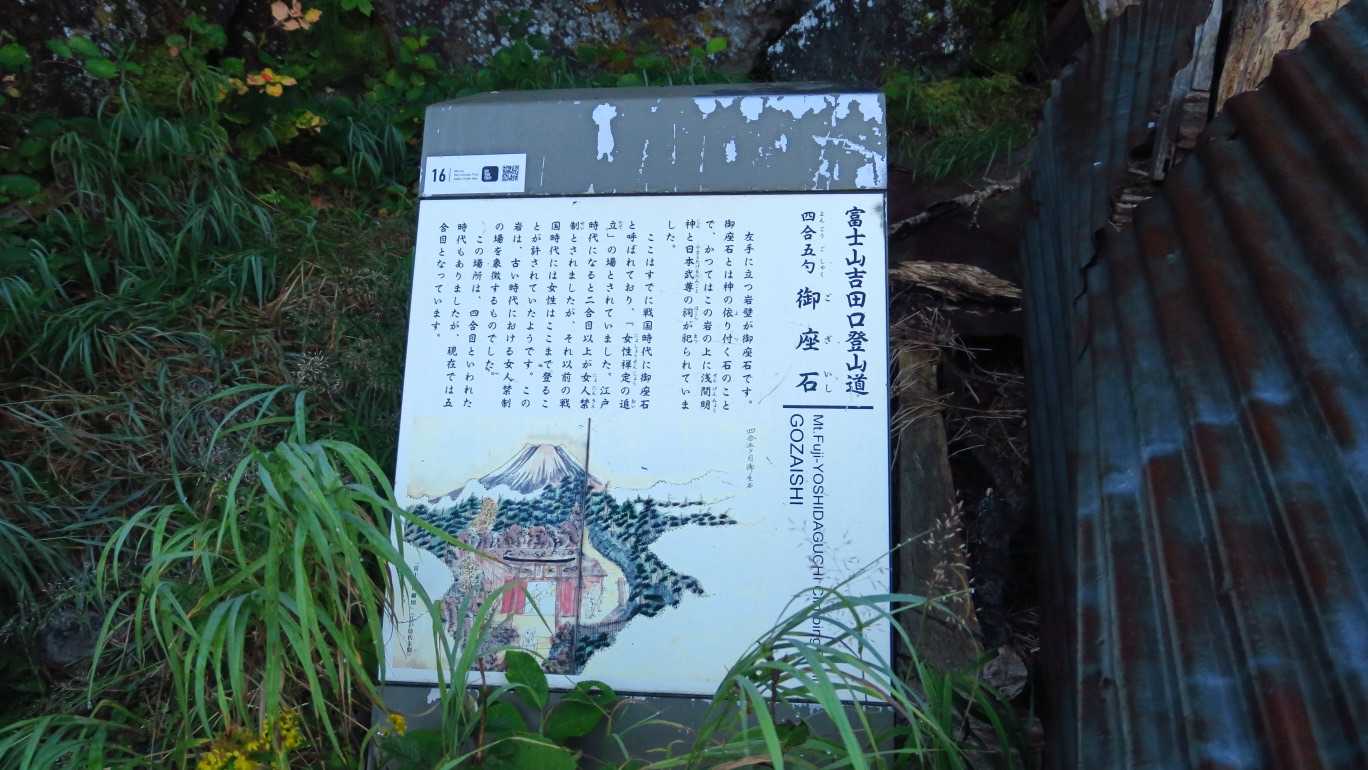 16
富士山吉田口登山道
四合五勺 御座石
よんごうごしゃく ございし
Mt.Fuji-YOSHIDAGUCHI Climbing
GOZAISHI
左手に立つ岩壁が御座石です。
御座石とは神の依り付く石のこと
で、かつてはこの岩の上に浅間明
神と日本武尊の祠が祀られていま
した。
ここはすでに戦国時代に御座石
と呼ばれており、「女性禅定の追
立」の場とされていました。江戸
時代になると二合目以上が女人禁
制とされましたが、それ以前の戦
国時代には女性はここまで登るこ
とが許されていたようです。この
岩は、古い時代における女人禁制
の場を象徴するものでした。
この場所は、四合目といわれた
時代もありましたが、現在では五
合目となっています。